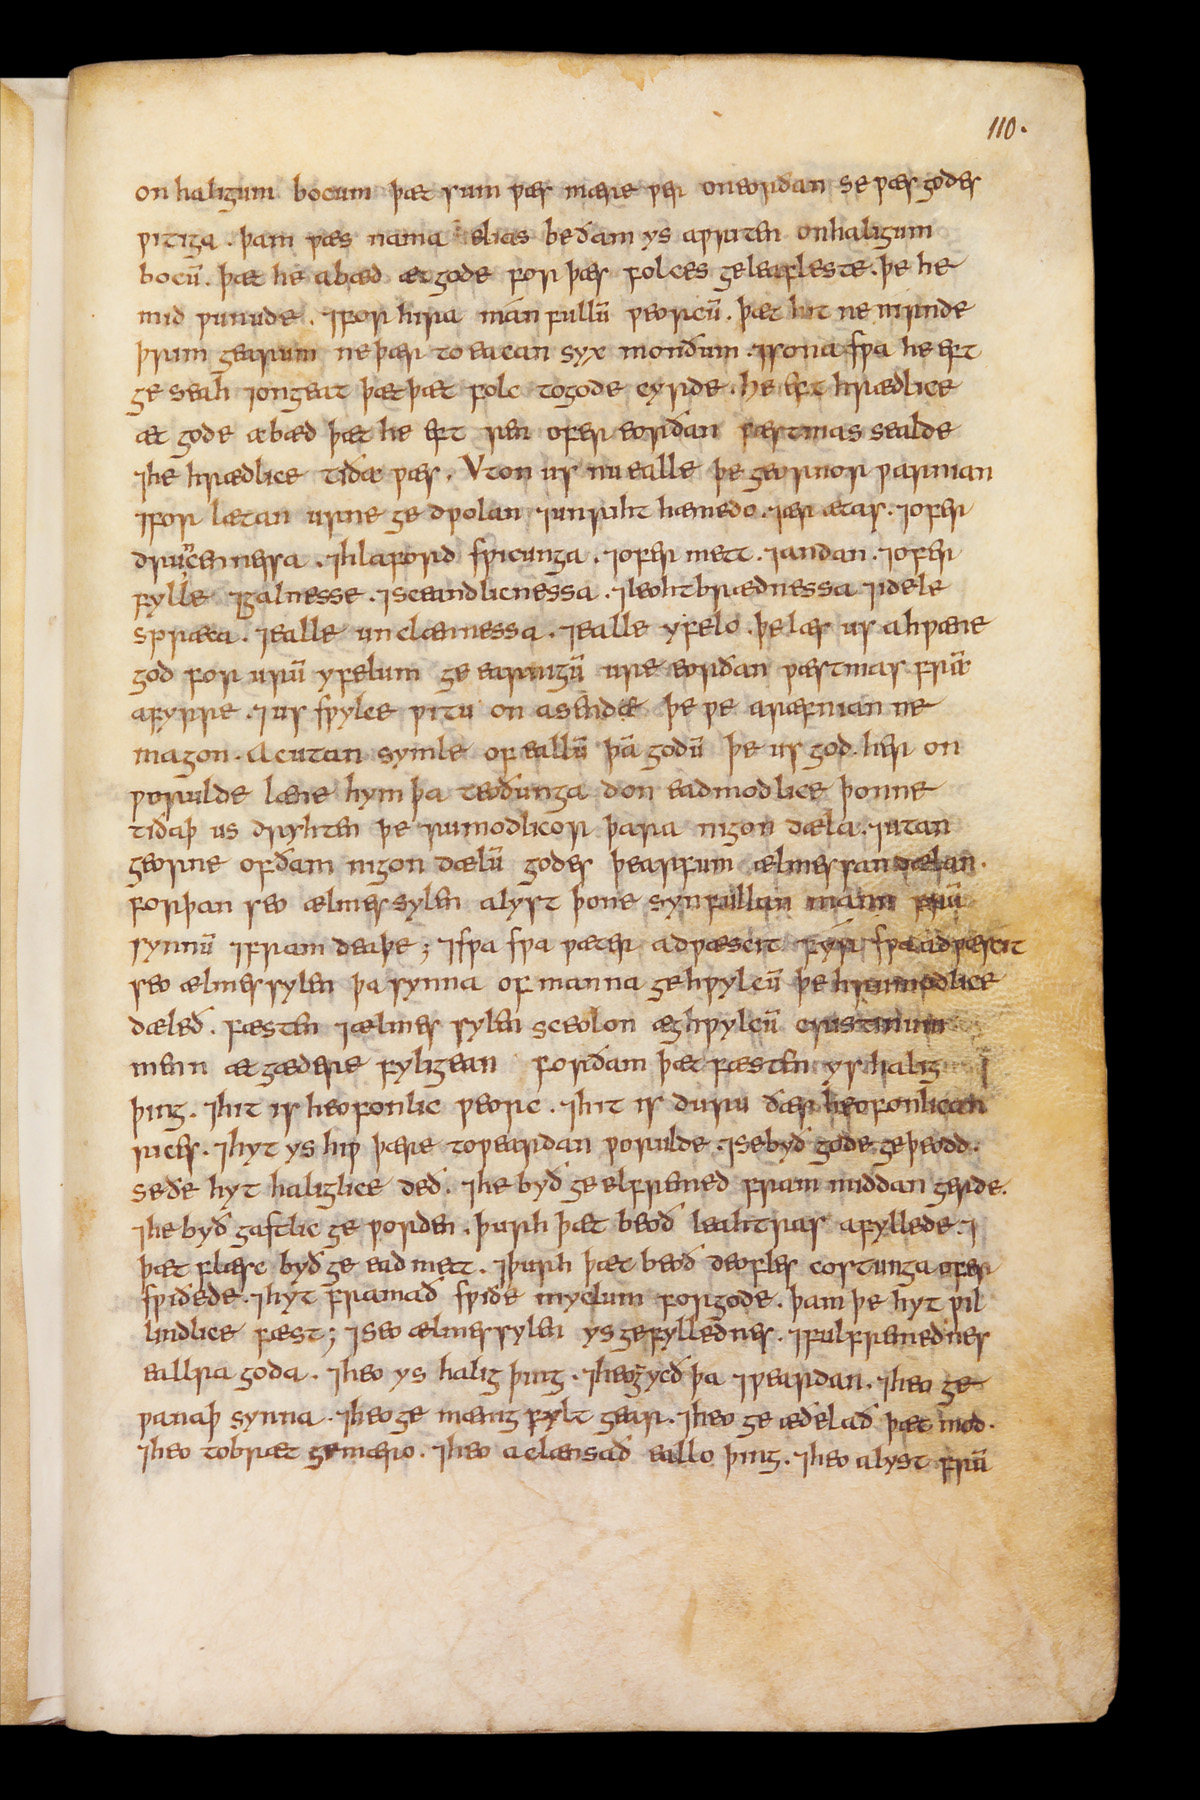 110.
on haligum bocum þæt sum wæs mære wer on eorðan se wæs godes
witiga . þam wæs nama elias be ðam ys awriten on haligum
bocū . þæt he abæd æt gode for þæs folces geleafleste . þe he
mid wunude . ⁊ for hira mánfullū weorcū . þæt hit ne rinde
þrim gearum ne þær to eacan syx monðum . ⁊ sona swa he eft
geseah ⁊ ongeat þæt þæt folc to gode cyrde . he eft hrædlice
æt gode abæd þæt he eft ren ofer eorðan wæstmas sealde
⁊ he hrædlice tiðæ wæs . Vton us nu ealle þe geornor warnian
⁊ forlætan urne gedwolan ⁊ unriht hæmedo . ⁊ ær ætas . ⁊ ofer
druncennessa . ⁊ hlaford swicunga . ⁊ ofer mett . ⁊ andan . ⁊ ofer
fylle ⁊ galnesse . ⁊ sceandlicnessa . ⁊ leohtbrædnessa ⁊ idele
spræca . ⁊ ealle unclænnessa . ⁊ ealle yfelo . þe læs us ahwæne
god for urū yfelum geearnugū ure eorðan wæstmas frā
afyrre . ⁊ us swylce witu on asendæ þe we aræfnian ne
magon . Ac utan symle of eallū þā godū þe us god her on
worulde læne hym þa teoðunga don eadmodlice þonne
tiðaþ us dryhten þe rumodlicor þara nigon dæla . ⁊ utan
georne of ðam nigon dælū godes þearfum ælmessan dælan .
forþan seo ælmessylen alyst þone synfullan mann frā
synnū ⁊ fram deaþe ; ⁊ swa swa wæter adwæscit fyr swa adwæscit
seo ælmessylen þa synna of manna gehwylcū þe hi rummodlice
dæleð . fæsten ⁊ ælmes sylen sceolon æghwylcū cristenum
menn ætgædere fyligean forðam þæt fæsten ys halig
þing . ⁊ hit is heofonlic weorc . ⁊ hit is duru ðær heofonlican
rices . ⁊ hyt ys hiw þære toweardan worulde . ⁊ se byð gode geþeodd .
se ðe hyt haliglice deð . ⁊ he byð geelfremed fram middangerde .
⁊ he byð gastlic geworden . þurh þæt beoð leahtras afyllede . ⁊
þæt flæsc byð geeadmett . ⁊ þurh þæt beoð deofles costunga ofer
swiðede . ⁊ hyt framað swiðe mycelum for gode . þam þe hyt wil
lindlice fæst ; ⁊ seo ælmessylen ys gefylleðnes . ⁊ fulfremednes
eallra goda . ⁊ heo ys halig þing . ⁊ heo gycð þa ⁊weardan . ⁊ heo ge
wanaþ synna . ⁊ heo gemænigfylt gear . ⁊ heo geæðelað þæt mod .
⁊ heo tobræt gemæro . ⁊ heo aclænsað eallo þing . ⁊ heo alyst frā